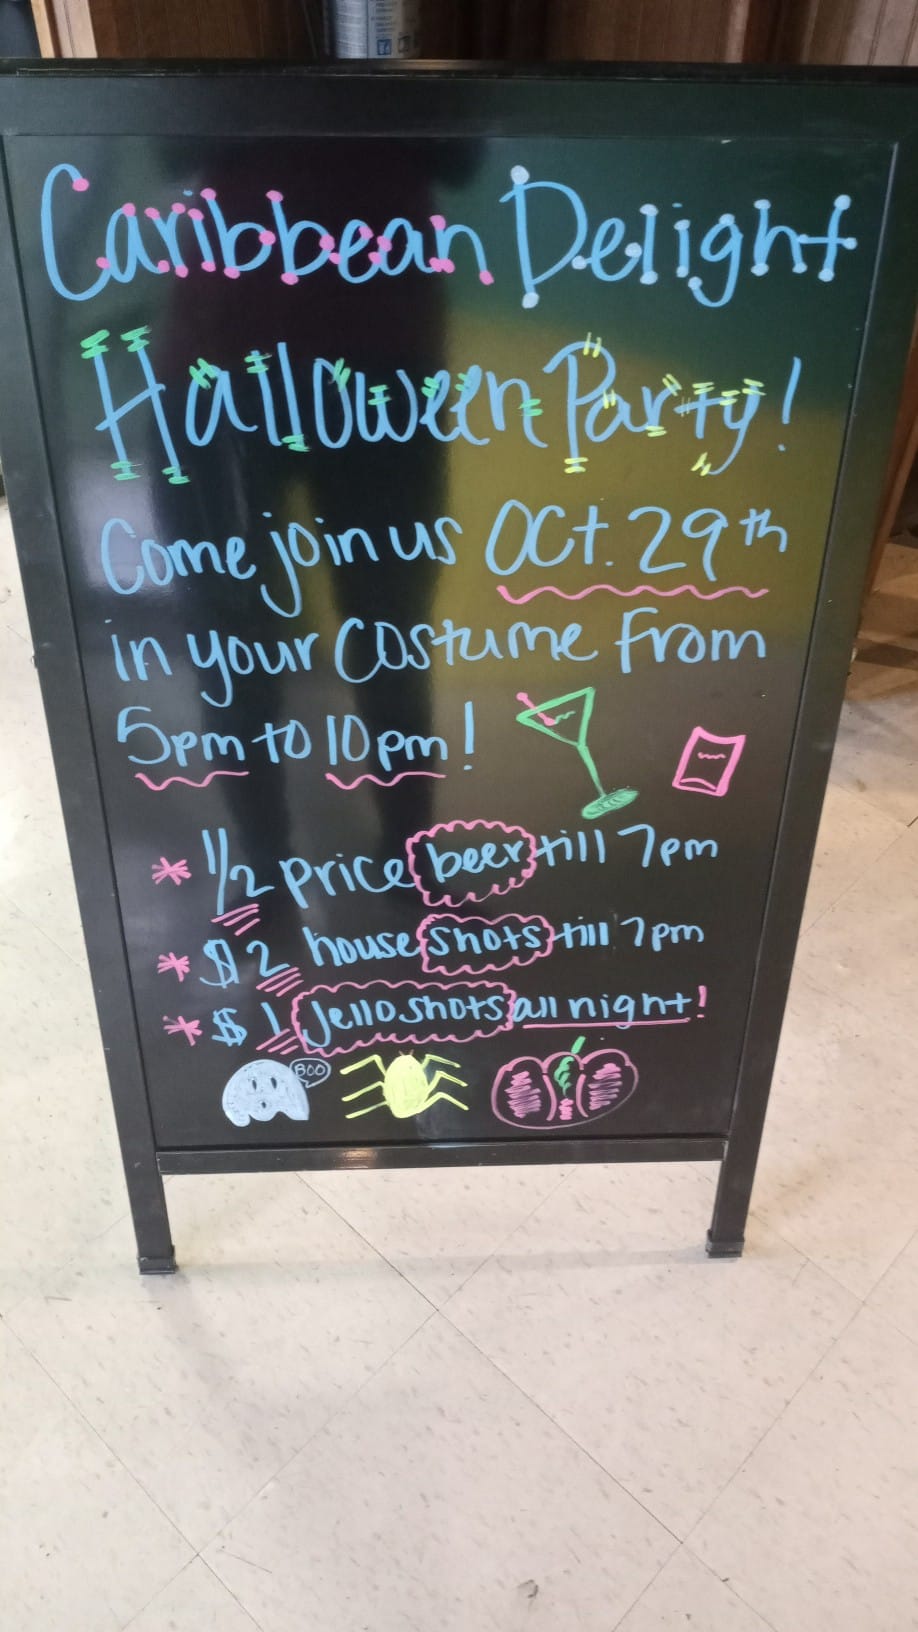 Caribbean Delight
Halloween Party!
Come join us Oct. 29th
in your costume from
5pm to 10pm!
* 1/2 price beer till 7pm
* $2 house shots till 7pm
* $1 Jello shots all night!
BOO